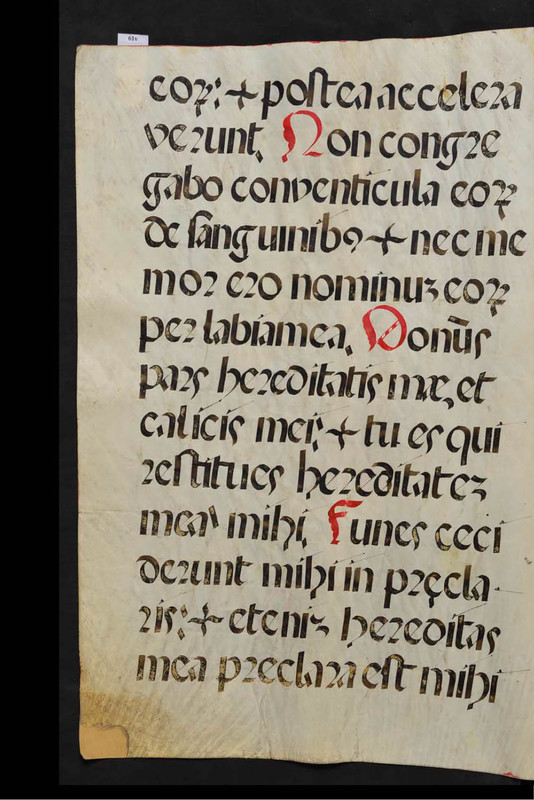 61v
eoꝝ: + postea accelera
verunt. Non congre
gabo conventicula eoꝝ
de sanguinibꝯ + nec me
mor ero nominuꝫ eoꝝ
per labia mea. Dom̄s
pars hereditatis meæ, et
calicis mei: + tu es qui
restitues hereditateꝫ
mea' mihi. Funes ceci
derunt mihi in pręcla-
ris: + eteniꝫ hereditas
mea preclara est mihi